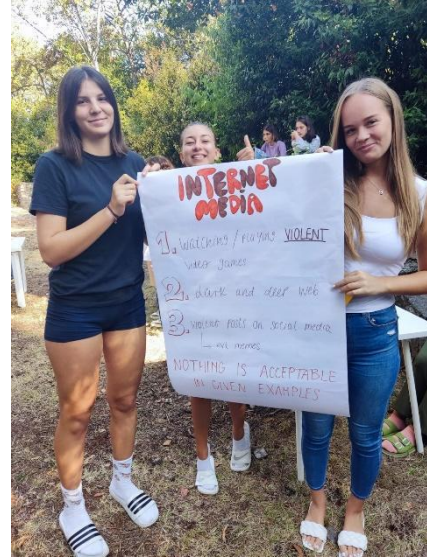 INTERNET
MEDIA
1. Watching / playing VIOLENT
video games
2. dark and deep web
3. violent posts on social media
memes
NOTHING IS ACCEPTABLE
IN GAVEN EXAMPLES